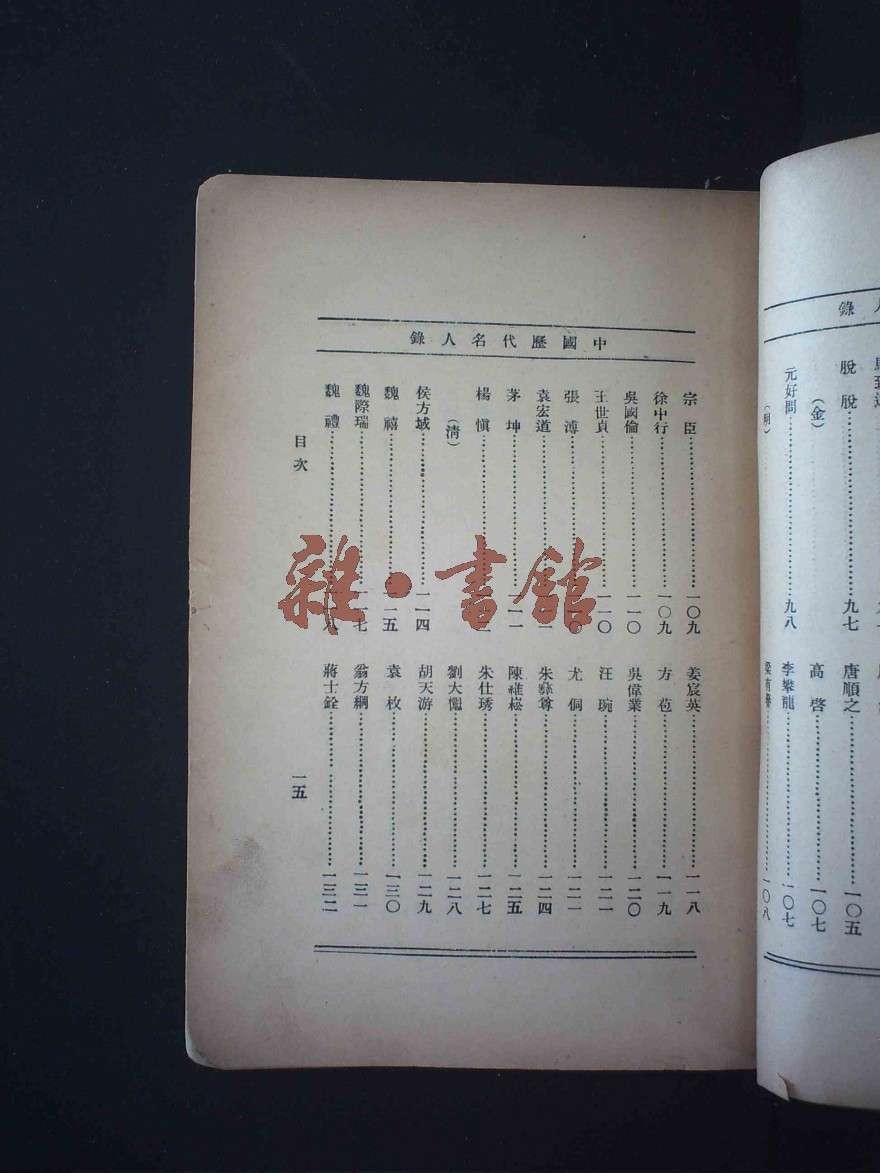 人錄
脫脫……九七
(金)
元好問……九八
(明)
唐順之……一〇五
高啓……一〇七
李攀龍……一〇七
梁有譽……一〇八
中國歷代名人錄
宗臣……一〇九
徐中行……一〇九
吳國倫……一一〇
王世貞……一一〇
張溥……一一〇
袁宏道……一一一
茅坤……一一一
楊愼……
(淸)
侯方域……一一四
魏禧……一一五
魏際瑞……一一七
魏禮……一一八
姜宸英……一一八
方苞……一一九
吳偉業……一二〇
汪琬……一二一
尤侗……一二一
朱彝尊……一二四
陳維崧……一二五
朱仕琇……一二七
劉大櫆……一二八
胡天游……一二九
袁枚……一三〇
翁方綱……一三一
蔣士銓……一三二
目次
一五
雜·書館